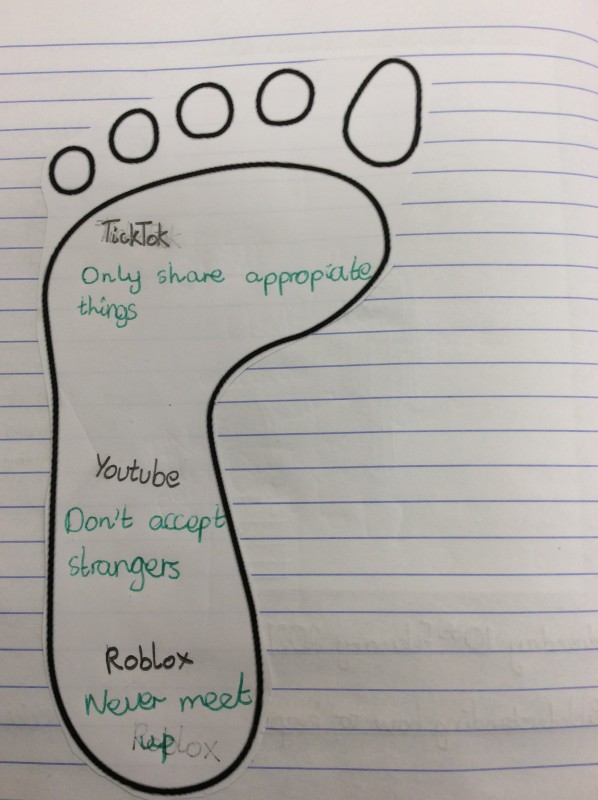 TickTok
Only share appropiate
things
Youtube
Don't accept
strangers
Roblox
Never meet
up
Roblox